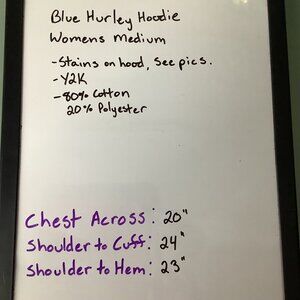 Blue Hurley Hoodie
Womens Medium
-Stains on hood, see pics.
-Y2K
-80% Cotton
20% Polyester
Chest Across: 20"
Shoulder to Cuff: 24"
Shoulder to Hem: 23"